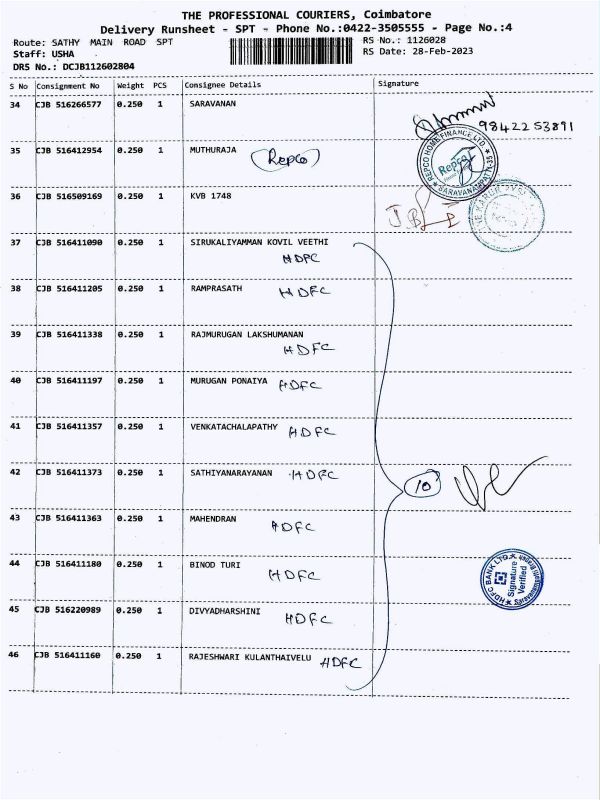 THE PROFESSIONAL COURIERS, Coimbatore
Delivery Runsheet - SPT - Phone No.:0422-3505555 - Page No.:4
Route: SATHY MAIN ROAD SPT
RS No.: 1126028
Staff: USHA
RS Date: 28-Feb-2023
DRS No.: DCJB112602804
S No Consignment No Weight PCS Consignee Details Signature
34 CJB 516266577 0.250 1 SARAVANAN
98422 53891
35 CJB 516412954 0.250 1 MUTHURAJA Repco
REPCO HOME FINANCE LTD.
Repco
SARAVANAMPATTI-35
36 CJB 516509169 0.250 1 KVB 1748
37 CJB 516411090 0.250 1 SIRUKALIYAMMAN KOVIL VEETHI
HDFC
38 CJB 516411205 0.250 1 RAMPRASATH HDFC
39 CJB 516411338 0.250 1 RAJMURUGAN LAKSHUMANAN
HDFC
40 CJB 516411197 0.250 1 MURUGAN PONAIYA HDFC
41 CJB 516411357 0.250 1 VENKATACHALAPATHY HDFC
42 CJB 516411373 0.250 1 SATHIYANARAYANAN HDFC
10
43 CJB 516411363 0.250 1 MAHENDRAN
HDFC
44 CJB 516411180 0.250 1 BINOD TURI
HDFC
HDFC BANK LTD.
Signature
Verified
45 CJB 516220989 0.250 1 DIVYADHARSHINI
HDFC
46 CJB 516411160 0.250 1 RAJESHWARI KULANTHAIVELU HDFC